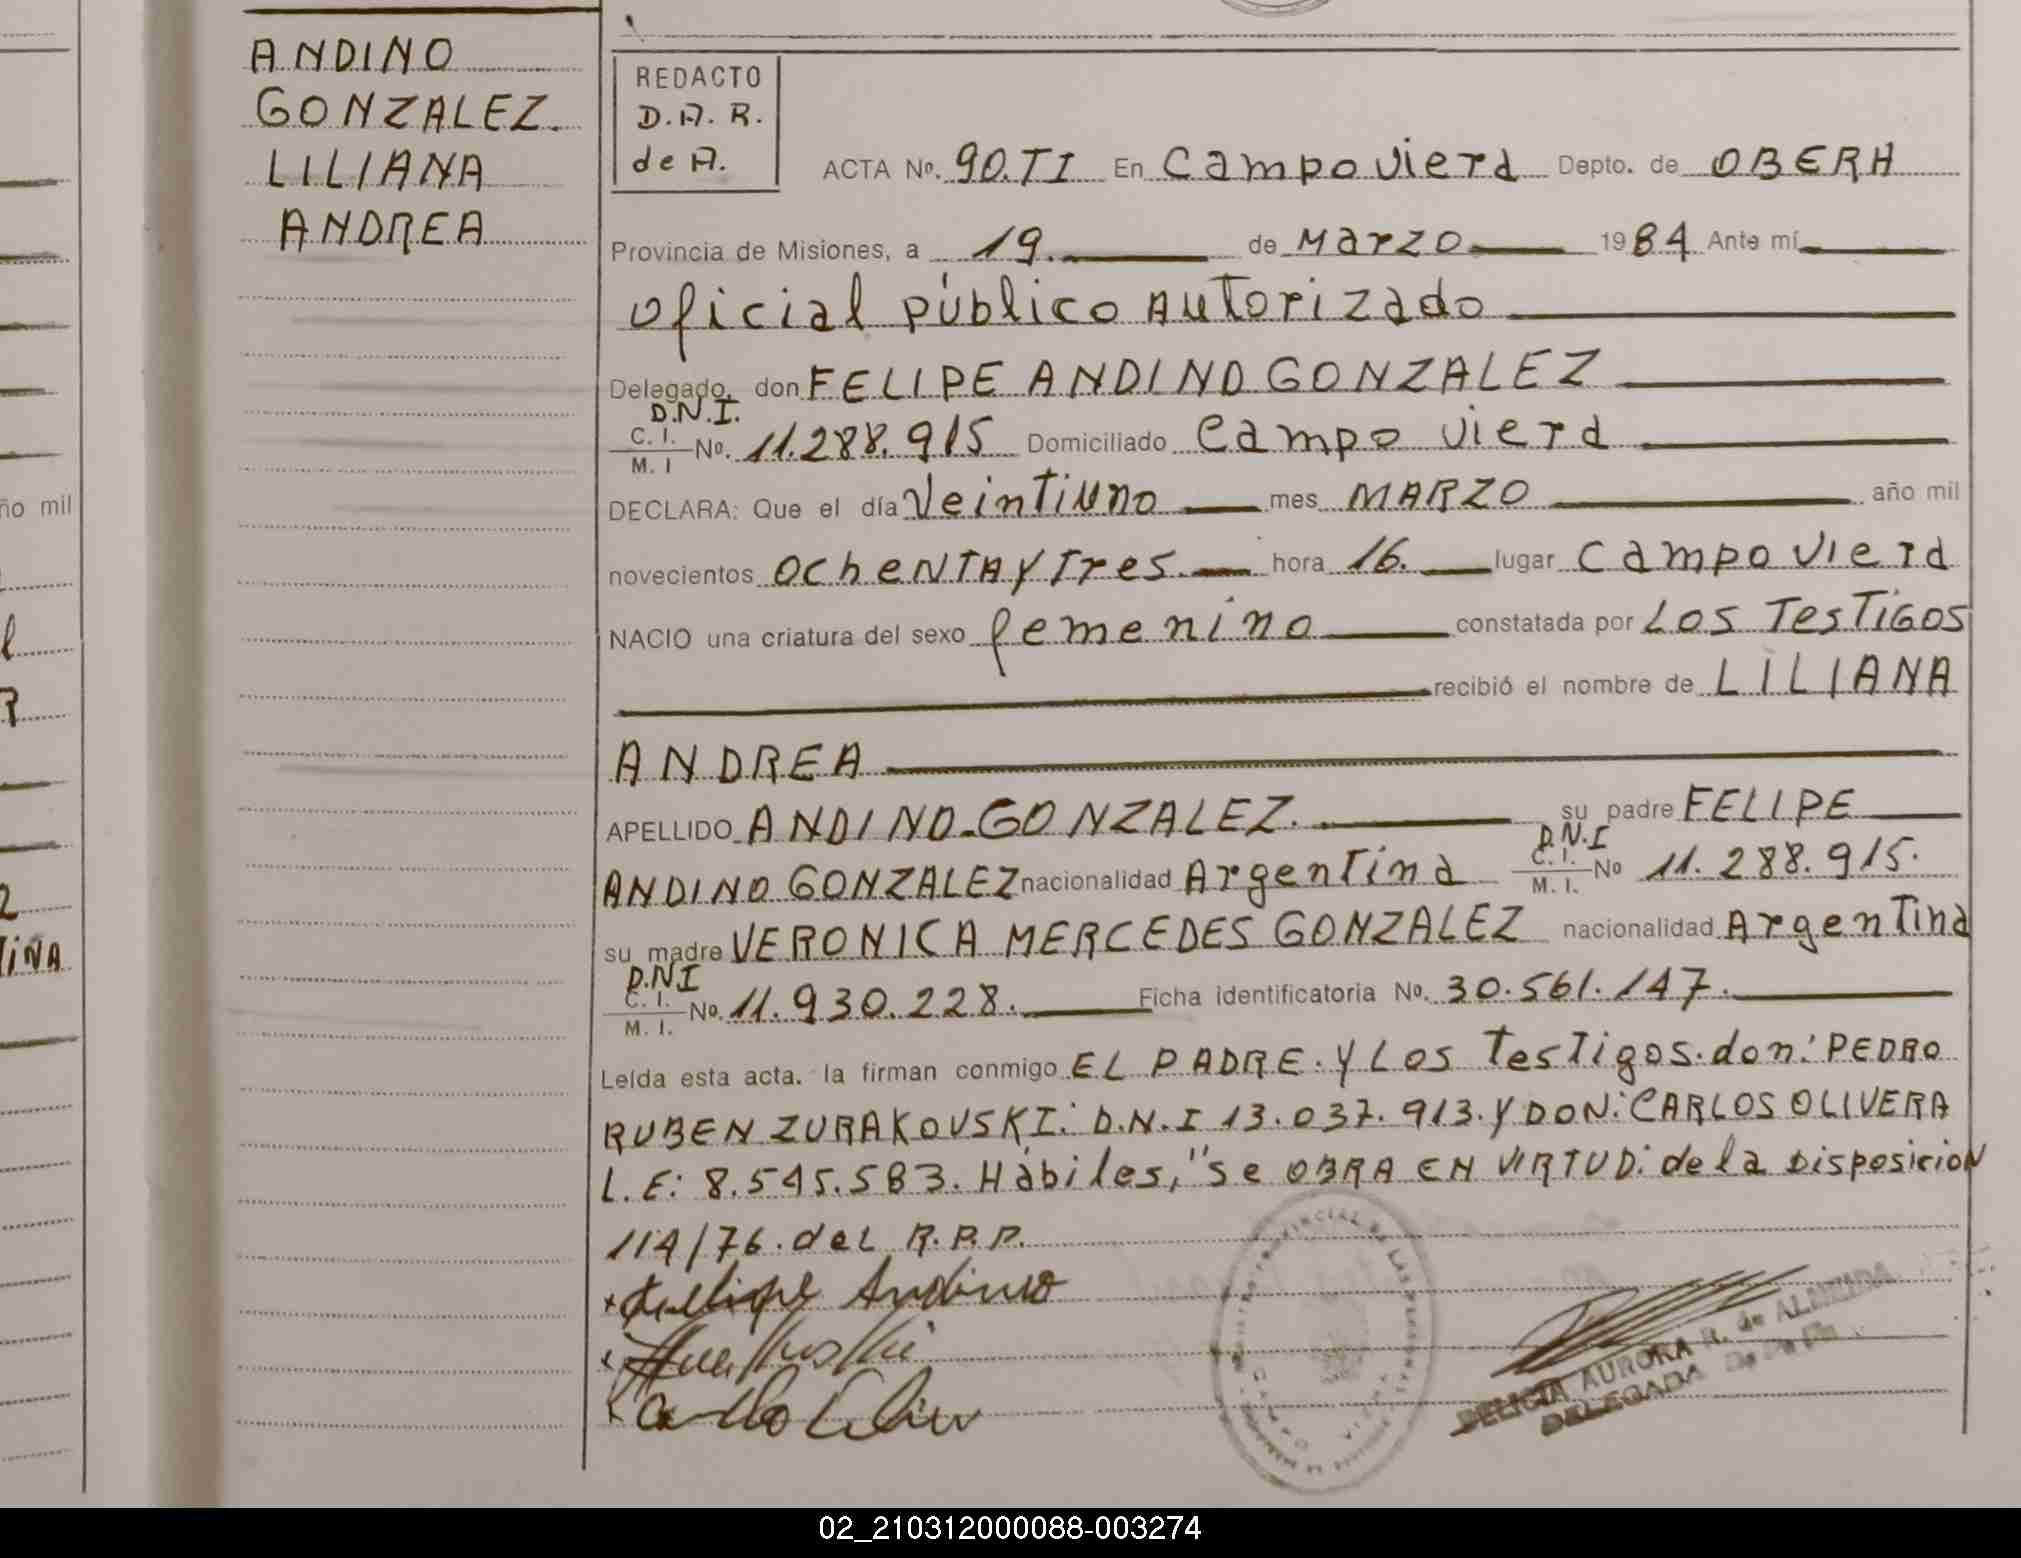 ANDINO
GONZALEZ.
LILIANA
ANDREA
REDACTO
D.A.R.
de A.
ACTA No. 90.TI En Campo Viera Depto. de OBERA
Provincia de Misiones, a 19. de Marzo 1984 Ante mí
Oficial público Autorizado
Delegado, don FELIPE ANDINO GONZALEZ
D.N.I.
C. I.
M. I No. 11.288.915 Domiciliado Campo Viera
DECLARA: Que el día Veintiuno mes MARZO año mil
novecientos ochenta y Tres. hora 16. lugar Campo Viera
NACIO una criatura del sexo femenino constatada por LOS TesTiGOS
recibió el nombre de LILIANA
ANDREA
APELLIDO ANDINO-GONZALEZ. su padre FELIPE
ANDINO GONZALEZ nacionalidad Argentina D.N.I C. I. M. I. No 11.288.915.
su madre VERONICA MERCEDES GONZALEZ nacionalidad Argentina
D.N.I
C. I.
M. I. No. 11.930.228. Ficha identificatoria No. 30.561.147.
Leída esta acta. la firman conmigo EL PADRE. y Los Testigos. don: PEDRO
RUBEN ZURAKOVSKI: D.N.I 13.037.913. y DON: CARLOS OLIVERA
L.E: 8.545.583. Hábiles, "se OBRA EN VIRTUD: de la Disposicion
114/76. del R.P.P.
x Felipe Andino
FELICIA AURORA R. de ALMEIDA
DELEGADA
ño mil
02_210312000088-003274